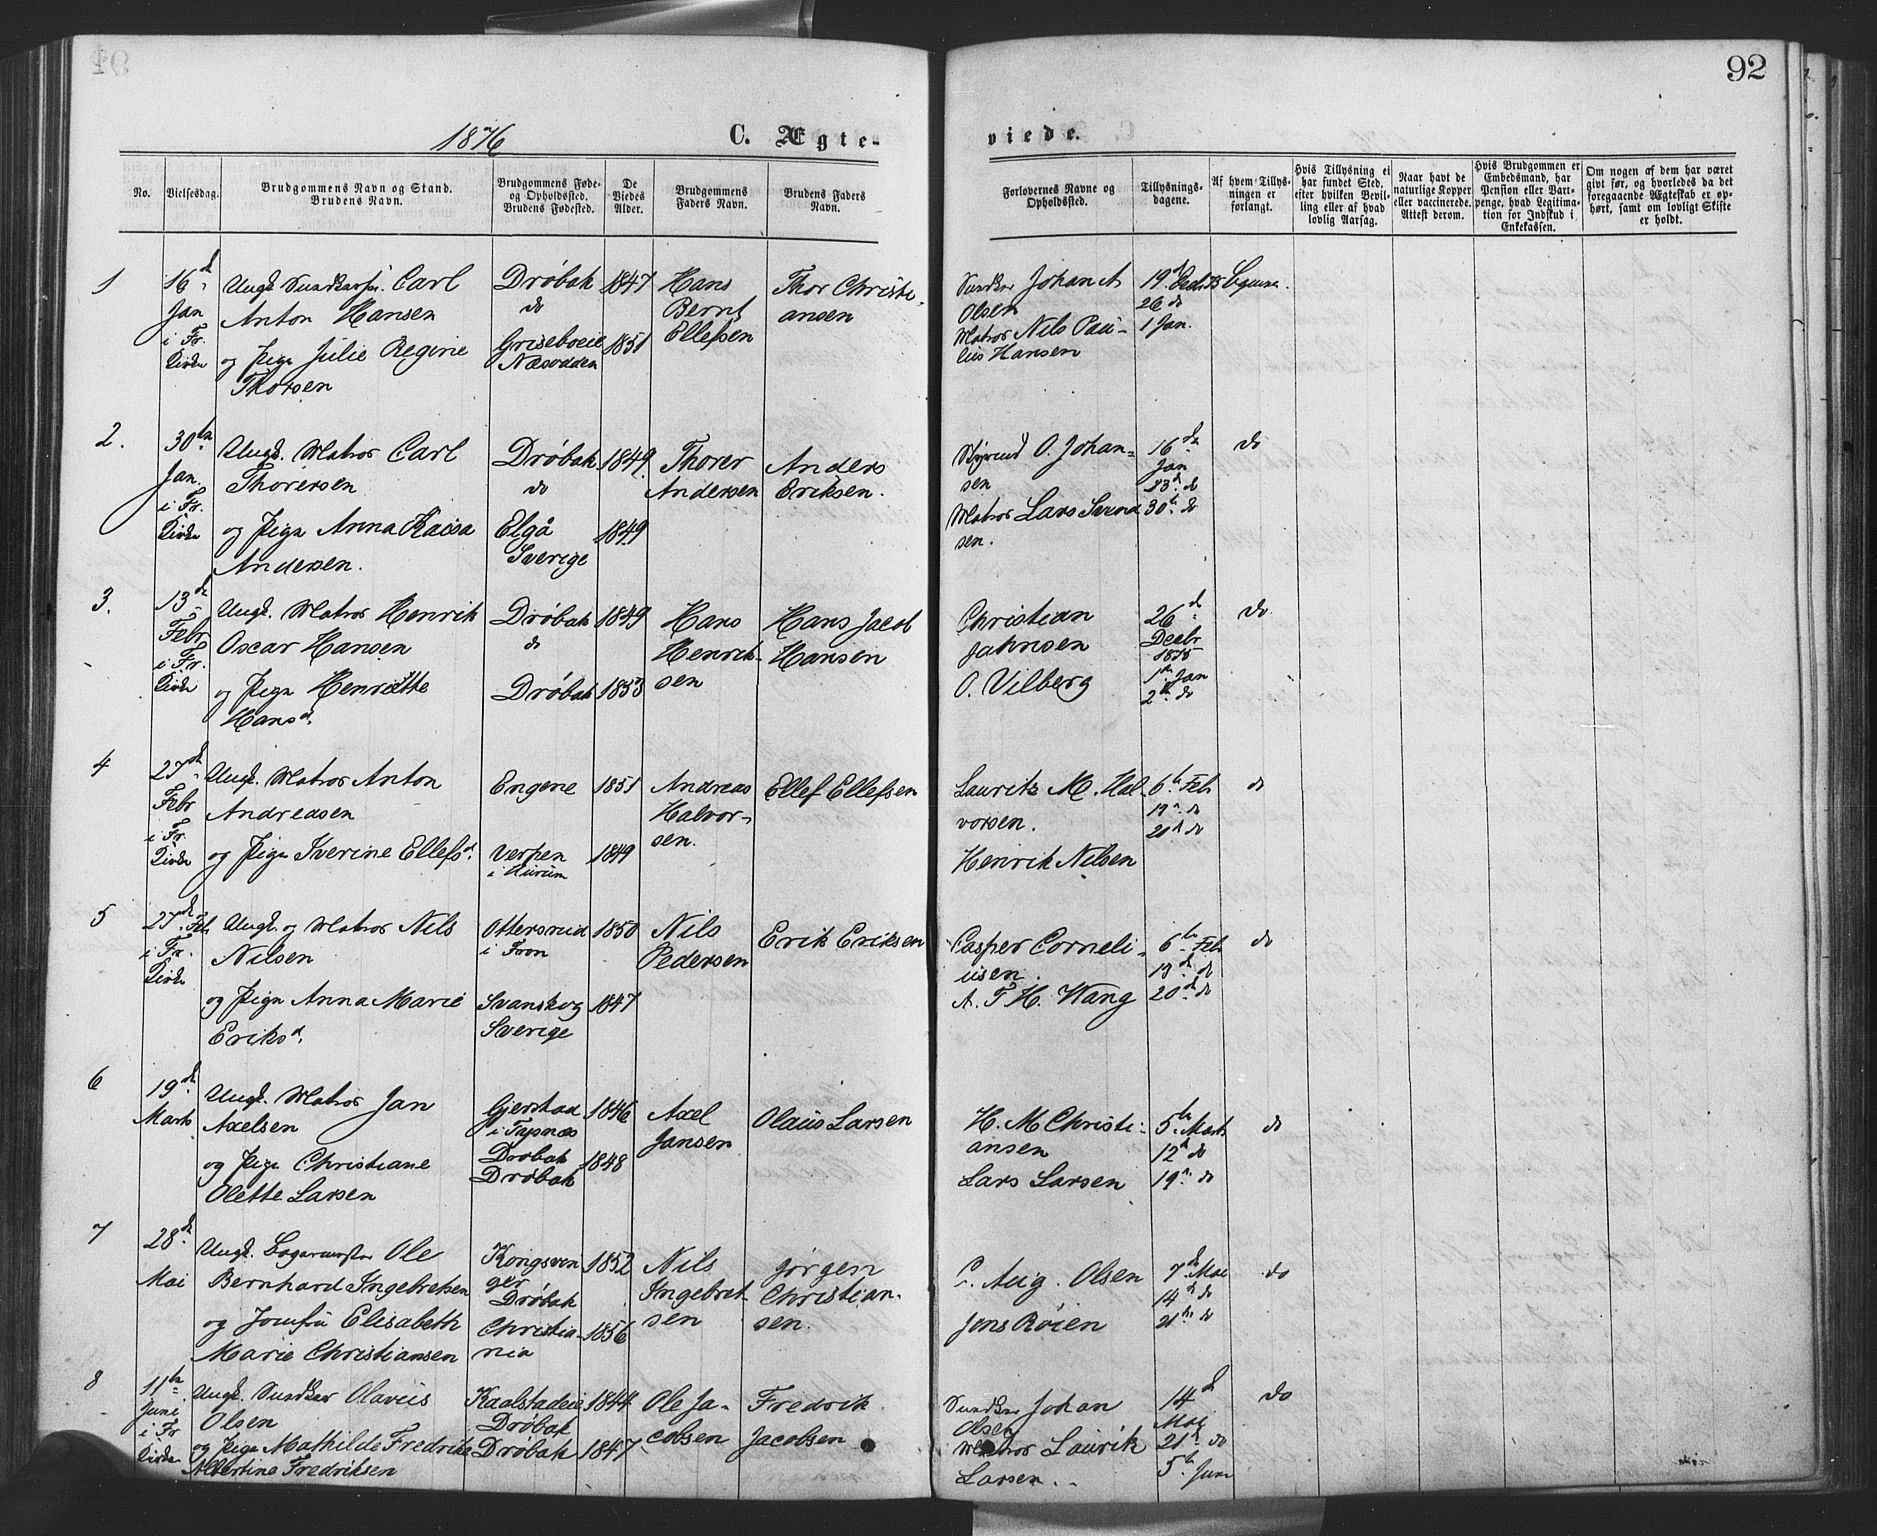 92
1876
C. Ægte-
viede.
No.
Vielsesdag.
Brudgommens Navn og Stand.
Brudens Navn.
Brudgommens Føde-
og Opholdssted.
Brudens Fødested.
De
Viedes
Alder.
Brudgommens
Faders Navn.
Brudens Faders
Navn.
Forlovernes Navne og
Opholdssted.
Tillysnings-
dagene.
Af hvem Tillys-
ningen er
forlangt.
Hvis Tillysning ei
har fundet Sted,
efter hvilken Bevil-
ling eller af hvad
lovlig Aarsag.
Naar havt de
naturlige Kopper
eller vaccinerede.
Attest derom.
Hvis Brudgommen er
Embedsmand, har
Pension eller Vart-
penge, hvad Legitima-
tion for Indskud i
Enkekassen.
Om nogen af dem har været
givt før, og hvorledes da det
foregaaende Ægteskab er op-
hørt, samt om lovligt Skifte
er holdt.
1
16de
Jan
i Fr.
Kirke
Ungk. Carl
Anton Hansen
og Pige Julie Regine
Thorsen
Drøbak
do
Griseboeie
Næsodden
1847
1851
Hans
Bernt
Ellefsen
Thor Christi-
ansen
Johan A.
Olsen
Matros Nils Pau-
lus Hansen
19d Decb 75
26 do
1 Jan.
2.
30te
Jan.
i Fr.
Kirke
Ungk. Matros Carl
Thorersen
og Pige Anna Kaisa
Andersen.
Drøbak
do
Elgå
Sverige
1849
1849
Thorer
Andersen
Anders
Eriksen.
Styrmd O. Johan-
sen
Matros Lars Svend
sen.
16de
Jan
23d do
30te do
do
3.
13de
Febr
i Fr.
Kirke
Ungk. Matros Henrik
Oscar Hansen
og Pige Henriette
Hansd.
Drøbak
do
Drøbak
1849
1853
Hans
Henrik-
sen
Hans Jacob
Hansen
Christian
Jahnsen
O. Vilberg
26de
Decbr
1875
1ste Jan
2de do
do
4
27de
Febr
i Fr.
Kirke
Ungk. Matros Anton
Andreasen
og Pige Iverine Ellefsd.
Engene
Verpen
i Hurum
1851
1849
Andreas
Halvor-
sen.
Ellef Ellefsen
Lauritz M. Hal-
vorsen.
Henrik Nilsen
6te Feb
do
20d do
do
5
27de Feb
i Fr.
Kirke
Ungk. og Matros Nils
Nilsen
og Pige Anna Marie
Eriksd.
Ottersrud
i Fron
Svanskog
Sverige
1850
1847
Nils
Pedersen
Erik Eriksen
Casper Corneli-
usen.
A. F. H. Wang
6te Feb
13de do
20de do
do
6
19de
Marts
Ungk. Matros Jan
Axelsen
og Pige Christiane
Olette Larsen
Gjerstad
i
Drøbak
Drøbak
1846
1848
Axel
Jansen
Olaus Larsen
H. M Christi-
ansen
Lars Larsen
5te Marts
12te do
19de do
do
7
28de
Mai
Ungk. Bagermester Ole
Bernhard Ingebretsen
og Jomfru Elisabeth
Marie Christiansen
Kongsvin
ger
Drøbak
Christia-
nia
1852
1856
Nils
Ingebret-
sen
Jørgen
Christian-
sen.
C. Aug. Olsen
Jens Røien
7de Mai
14de do
21de do
do
8
11te
Juni
i Fr
Kirke
Ungk. Olavus
Olsen
og Pige Mathilde Fredrikke
Albertine Fredriksen
Kaalstadeie
Drøbak
Drøbak
1844
1847
Ole Ja-
cobsen
Fredrik
Jacobsen
Johan
Olsen
Matros Laurik
Larsen.
14de
Mai
21de do
5te Juni
do